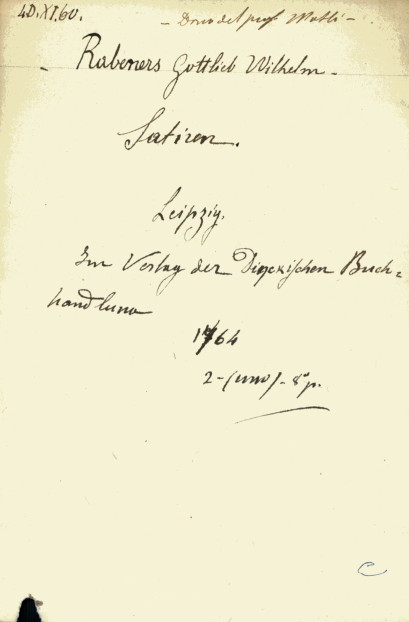 40.XI.60.
- Dono del prof. Mahli -
- Rabeners Gottlieb Wilhelm -
Satiren.
Leipzig.
Im Verlag der Dyckischen Buch=
handlung
1764
2-(uno)-8° p.
C